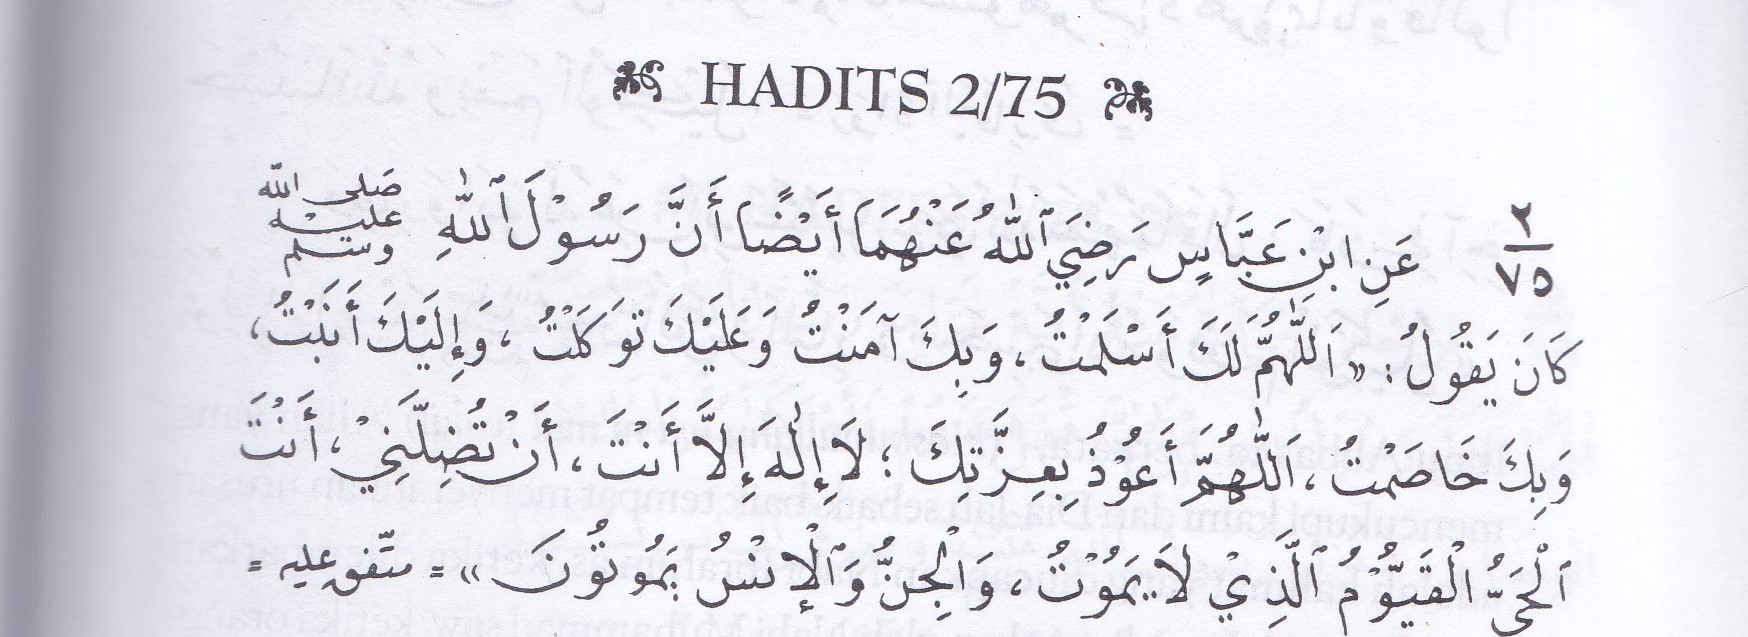 HADITS 2/75
٢/٧٥ عَنِ ابْنِ عَبَّاسٍ رَضِيَ ٱللّٰهُ عَنْهُمَا أَيْضًا أَنَّ رَسُوْلَ ٱللّٰهِ صَلى الله عليه وسلم
كَانَ يَقُولُ : « اَللّٰهُمَّ لَكَ أَسْلَمْتُ ، وَبِكَ آمَنْتُ وَعَلَيْكَ تَوَكَلْتُ ، وَإِلَيْكَ أَنَبْتُ ،
وَبِكَ خَاصَمْتُ ، اَللّٰهُمَّ أَعُوْذُ بِعِزَّتِكَ ؛ لَا إِلٰهَ إِلَّا أَنْتَ ، أَنْ تُضِلَّنِيْ ، أَنْتَ
ٱلْحَيُّ الْقَيُّوْمُ ٱلَّذِيْ لَا يَمُوْتُ ، وَٱلْجِنُّ وَٱلْإِنْسُ يَمُوْتُوْنَ » = متّفق عليه =